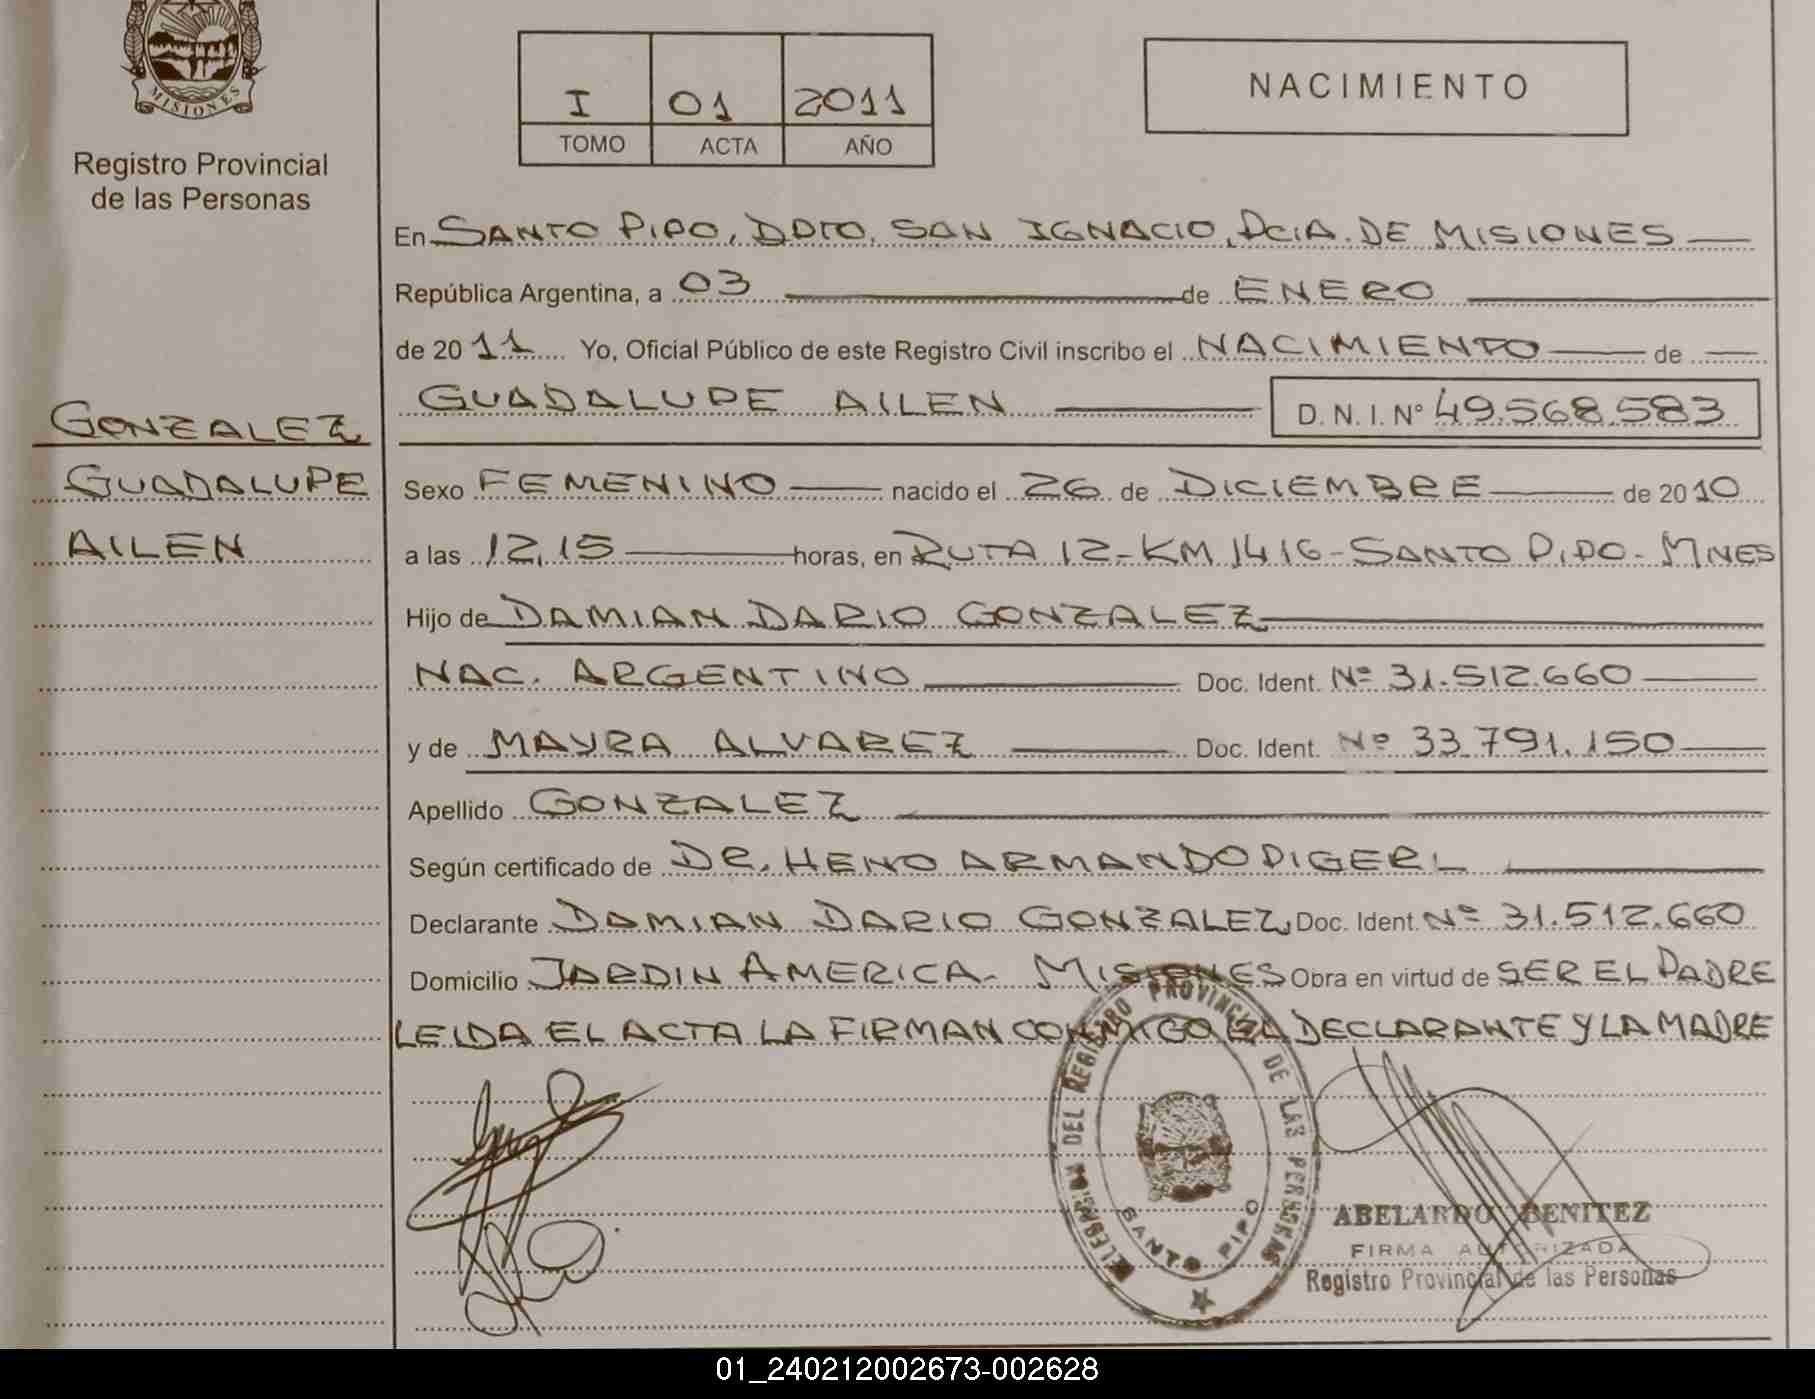 MISIONES
Registro Provincial
de las Personas
GONZALEZ
GUADALUPE
AILEN
I 01 2011
TOMO ACTA AÑO
NACIMIENTO
En SANTO PIPO, DPTO. SAN IGNACIO, PCIA. DE MISIONES
República Argentina, a 03 de ENERO
de 2011 Yo, Oficial Público de este Registro Civil inscribo el NACIMIENTO de
GUADALUPE AILEN D. N. I. N° 49.568.583
Sexo FEMENINO nacido el 26 de DICIEMBRE de 2010
a las 12,15 horas, en RUTA 12-KM 1416-SANTO PIPO-MNES
Hijo de DAMIAN DARIO GONZALEZ
NAC. ARGENTINO Doc. Ident. Nº 31.512.660
y de MAYRA ALVAREZ Doc. Ident. Nº 33.791.150
Apellido GONZALEZ
Según certificado de DR. HENO ARMANDO PIGERL
Declarante DAMIAN DARIO GONZALEZ, Doc. Ident. Nº 31.512.660
Domicilio JARDIN AMERICA - MISIONES Obra en virtud de SER EL PADRE
LEIDA EL ACTA LA FIRMAN CONMIGO EL DECLARANTE Y LA MADRE
DELEGACION DEL REGISTRO PROVINCIAL DE LAS PERSONAS
SANTO PIPO
ABELARDO BENITEZ
FIRMA AUTORIZADA
Registro Provincial de las Personas
01_240212002673-002628